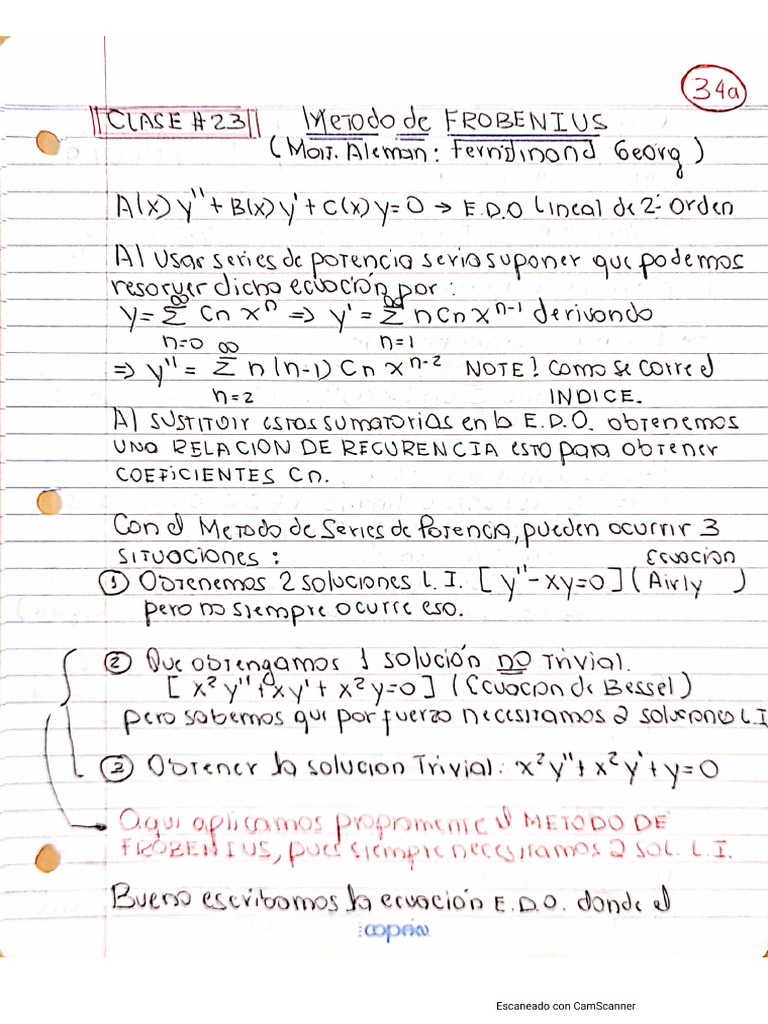 34a
CLASE #23 Metodo de FROBENIUS
(Mat. Aleman: Ferndinand Georg)
A(x) y'' + B(x) y' + C(x) y = 0 → E.D.O Lineal de 2º Orden
Al usar series de potencia seria suponer que podemos
resolver dicha ecuación por:
y = ∑_{n=0}^{∞} Cn x^n ⇒ y' = ∑_{n=1}^{∞} n Cn x^{n-1} derivando
⇒ y'' = ∑_{n=2}^{∞} n(n-1) Cn x^{n-2} NOTE! Como se corre el
INDICE.
Al SUSTITUIR estas sumatorias en la E.D.O. obtenemos
UNA RELACION DE RECURENCIA esto para obtener
COEFICIENTES Cn.
Con el Metodo de Series de Potencia, pueden ocurrir 3
situaciones:
① Obtenemos 2 soluciones L.I. [y'' - xy = 0] (Ecuacion Airly)
pero no siempre ocurre eso.
② Que obtengamos 1 solución no Trivial.
[x² y'' + xy' + x² y = 0] (Ecuacion de Bessel)
pero sabemos que por fuerza necesitamos 2 soluciones L.I
③ Obtener la solucion Trivial: x² y'' + x² y' + y = 0
Aqui aplicamos propiamente el METODO DE
FROBENIUS, pues siempre necesitamos 2 SOL. L.I.
Bueno escribamos la ecuación E.D.O. donde el
copán
Escaneado con CamScanner